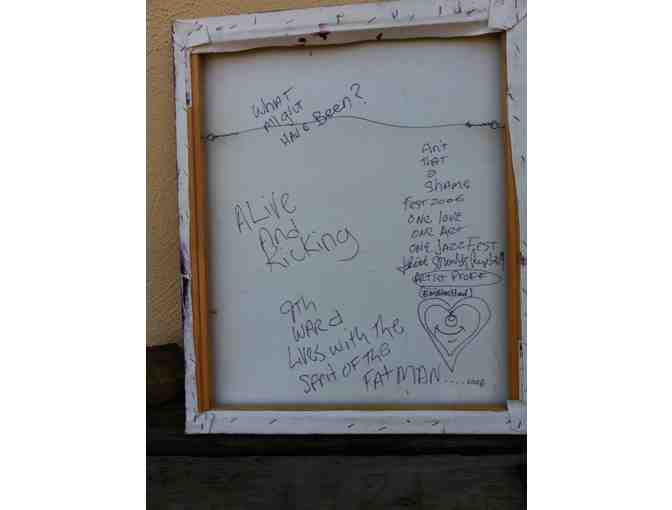 What
Might
Have Been?
Ain't
That
a
Shame
Fest 2006
One Love
One Art
One JazzFest
Artist Proof
(Embellished)
Alive
And
Kicking
9th
Ward
Lives with the
Spirit of the
Fat Man....